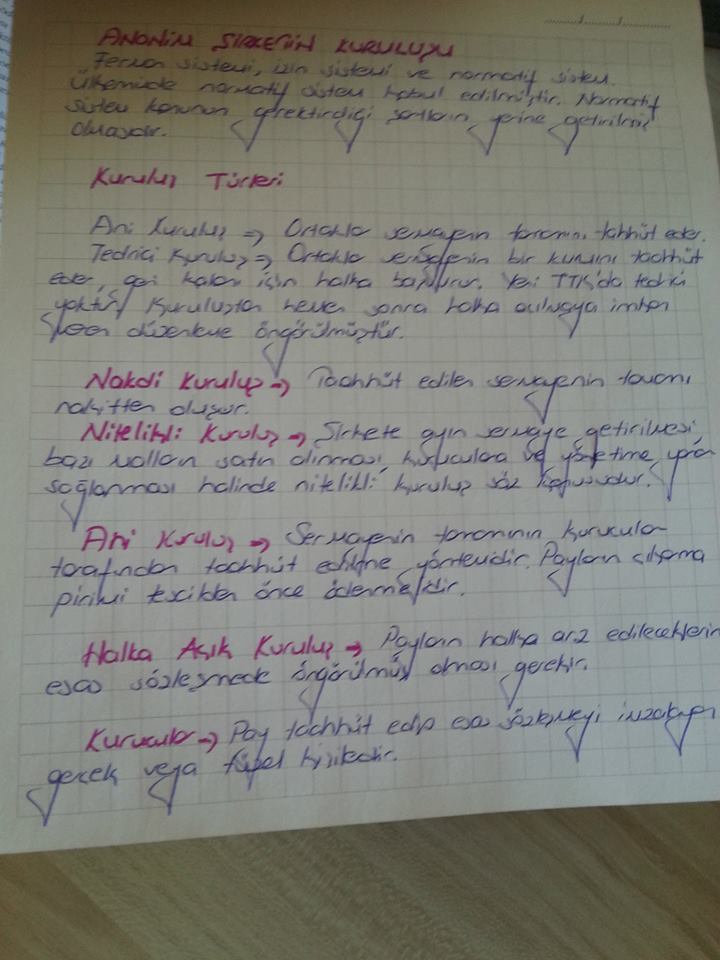 ANONİM ŞİRKETİN KURULUŞU
Ferman sistemi, izin sistemi ve normatif sistem.
Ülkemizde normatif sistem kabul edilmiştir. Normatif
sistem kanunun gerektirdiği şartların yerine getirilmiş
olmasıdır.
Kuruluş Türleri
Ani Kuruluş => Ortaklar sermayenin tamamını taahhüt eder.
Tedrici Kuruluş => Ortaklar sermayenin bir kısmını taahhüt
eder, geri kalan için halka başvurur. Yeni TTK'da tedrici
yoktur. Kuruluştan hemen sonra halka açılmaya imkan
veren düzenleme öngörülmüştür.
Nakdi Kuruluş => Taahhüt edilen sermayenin tamamı
nakitten oluşur.
Nitelikli Kuruluş => Şirkete ayın sermaye getirilmesi
bazı malların satın alınması, kuruculara ve yönetime yarar
sağlanması halinde nitelikli kuruluş söz konusudur.
Ani Kuruluş => Sermayenin tamamının kurucular
tarafından taahhüt edilme yöntemidir. Payların çıkarma
primi tescilden önce ödenmelidir.
Halka Açık Kuruluş => Payların halka arz edileceklerin
esas sözleşmede öngörülmüş olması gerekir.
Kurucular => Pay taahhüt edip esas sözleşmeyi imzalayan
gerçek veya tüzel kişilerdir.